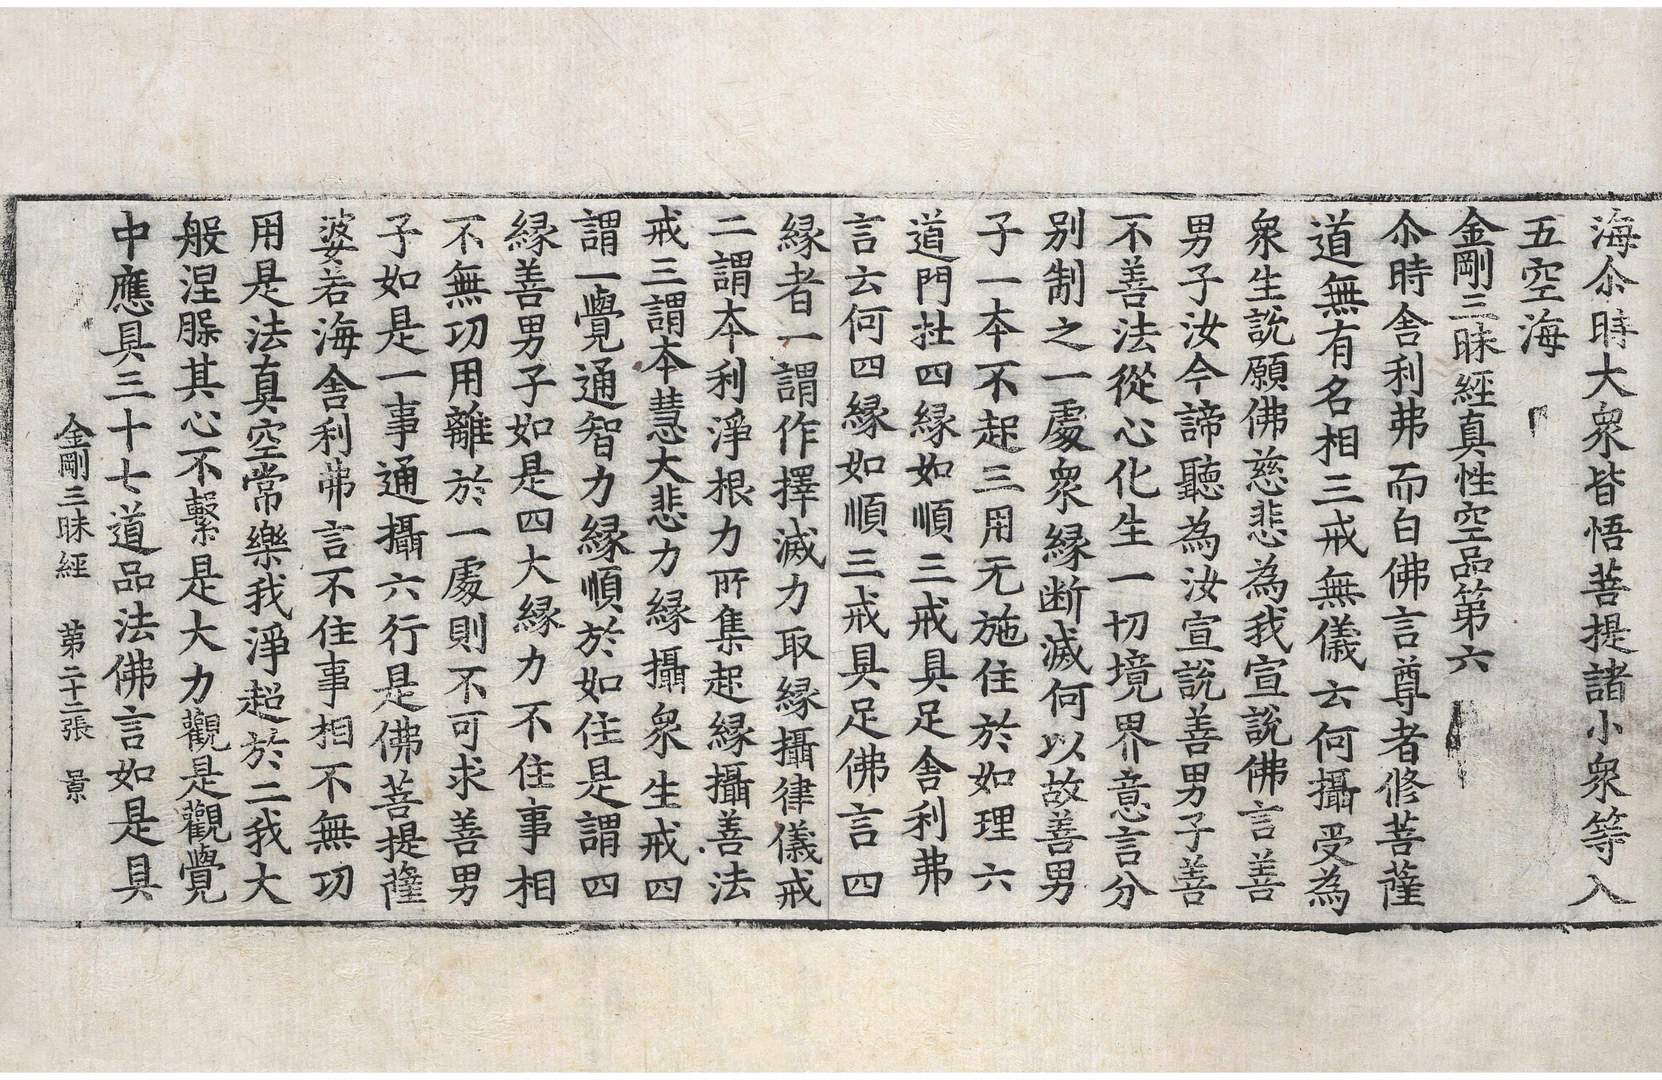 海尒時大衆皆悟菩提諸小衆等入
五空海
金剛三昧經真性空品第六
尒時舎利弗而白佛言尊者修菩薩
道無有名相三戒無儀云何攝受為
衆生說願佛慈悲為我宣說佛言善
男子汝今諦聽為汝宣說善男子善
不善法從心化生一切境界意言分
别制之一處衆縁断滅何以故善男
子一本不起三用无施住於如理六
道門扗四縁如順三戒具足舎利弗
言云何四縁如順三戒具足佛言四
縁者一謂作擇滅力取縁攝律儀戒
二謂本利淨根力所集起縁攝善法
戒三謂本慧大悲力縁攝衆生戒四
謂一覺通智力縁順於如住是謂四
縁善男子如是四大縁力不住事相
不無功用離於一處則不可求善男
子如是一事通攝六行是佛菩提薩
婆若海舎利弗言不住事相不無功
用是法真空常樂我淨超於二我大
般涅脲其心不繫是大力觀是觀覺
中應具三十七道品法佛言如是具
金剛三昧經 第二十二張 景